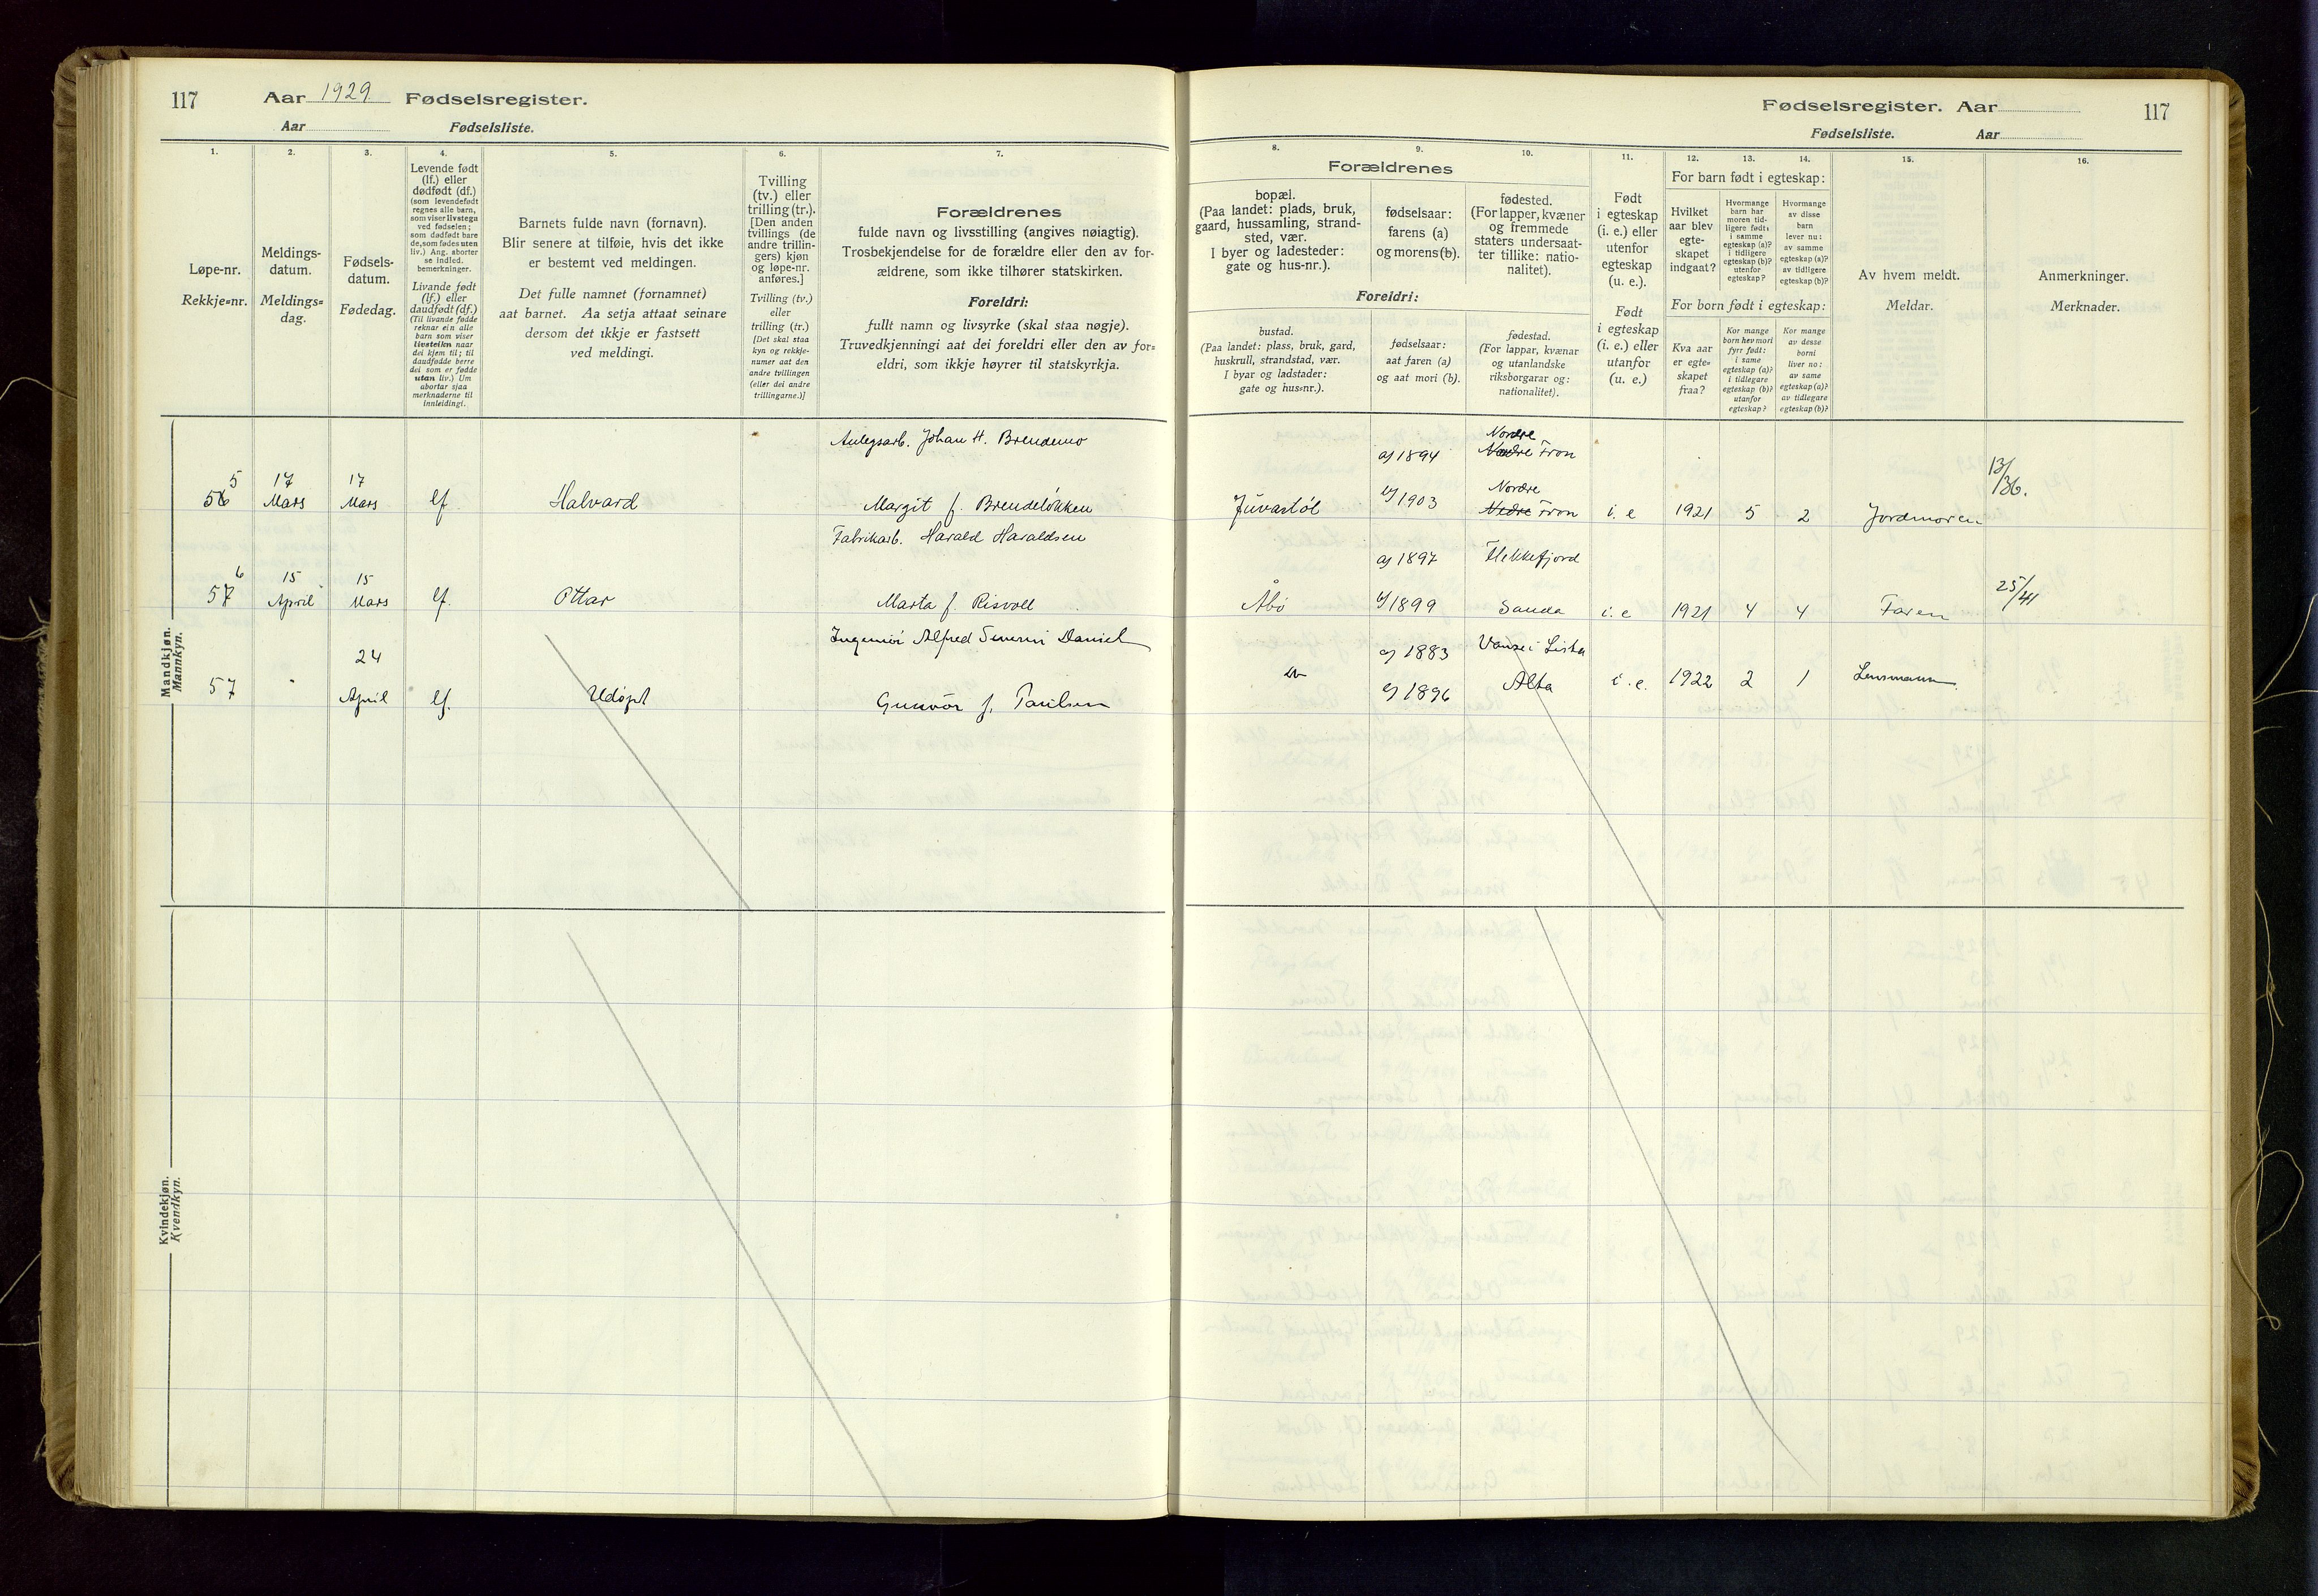 117 Aar 1929 Fødselsregister.
Aar Fødselsliste.
Fødselsregister. Aar 117
Fødselsliste. Aar
1. 2. 3. 4. 5. 6. 7.
Løpe-nr.
Rekkje=nr.
Meldings-
datum.
Meldings=
dag.
Fødsels-
datum.
Fødedag.
Levende født
(lf.) eller
dødfødt (df.)
(som levendefødt
regnes alle barn,
som viser livstegn
ved fødselen;
som dødfødt bare
de, som fødes uten
liv.) Ang. aborter
se indled.
bemerkninger.
Livande født
(lf.) eller
daudfødt (df.)
(Til livande fødde
reknar ein alle
barn som viser
livsteikn naar
dei kjem til; til
daudfødde berre
dei som er fødde
utan liv.) Um
abortar sjaa
merknaderne til
innleidingi.
Barnets fulde navn (fornavn).
Blir senere at tilføie, hvis det ikke
er bestemt ved meldingen.
Det fulle namnet (fornamnet)
aat barnet. Aa setja attaat seinare
dersom det ikkje er fastsett
ved meldingi.
Tvilling
(tv.) eller
trilling (tr.).
[Den anden
tvillings (de
andre trillin-
gers) kjøn
og løpe-nr.
anføres.]
Tvilling (tv.)
eller
trilling (tr.)
[Det skal staa
kyn og rekkje-
numer aat den
andre tvillingen
(eller dei andre
trillingarne.)]
Forældrenes
fulde navn og livsstilling (angives nøiagtig).
Trosbekjendelse for de forældre eller den av for-
ældrene, som ikke tilhører statskirken.
Foreldri:
fullt namn og livsyrke (skal staa nøgje).
Truvedkjenningi aat dei foreldri eller den av for=
eldri, som ikkje høyrer til statskyrkja.
8. 9. 10. 11. 12. 13. 14. 15. 16.
Forældrenes
bopæl.
(Paa landet: plads, bruk,
gaard, hussamling, strand-
sted, vær.
I byer og ladesteder:
gate og hus-nr.).
fødselsaar:
farens (a)
og morens (b).
fødested.
(For lapper, kvæner
og fremmede
staters undersaat-
ter tillike: natio-
nalitet).
Foreldri:
bustad.
(Paa landet: plass, bruk, gard,
huskrull, strandstad, vær.
I byar og ladstader:
gate og hus=nr.).
fødselsaar:
aat faren (a)
og aat mori (b).
fødestad.
(For lappar, kvænar
og utanlandske
riksborgarar og:
nationalitet).
Født
i egteskap
(i. e.) eller
utenfor
egteskap
(u. e.).
Født
i egteskap
(i. e.) eller
utanfor
(u. e.)
For barn født i egteskap:
Hvilket
aar blev
egte-
skapet
indgaat?
Hvormange
barn har
moren tid-
ligere født:
i samme
egteskap (a)?
i tidligere
egteskap (b)?
utenfor
egteskap?
Hvormange
av disse
barn
lever nu:
av samme
egteskap (a)?
av tidligere
egteskap (b)?
For born født i egteskap:
Kva aar
er egte=
skapet
fraa?
Kor mange
born hev mori
fyrr født:
i same
egteskap (a)?
i tidlegare
egteskap (b)?
utanfor
egteskap?
Kor mange
av desse
borni
liver no:
av same
egteskap (a)?
av tidlegare
egteskap (b)?
Av hvem meldt.
Meldar.
Anmerkninger.
Merknader.
Mandkjøn.
Mannkyn.
Anlegsarb. Johan H. Brendemo a) 1894 Nordre Fron
55 17 Mars 17 Mars lf Halvard Margit f. Brendeløkken Juvastøl b) 1903 Nordre Fron i. e 1921 5 2 Jordmoren 13/136.
Fabrikarb. Harald Haraldsen a) 1897 Flekkefjord
56 15 April 15 Mars lf. Ottar Marta f. Risvoll Åbø b) 1899 Sauda i. e 1921 4 4 Faren 25/41
Ingeniør Alfred Severin Daniel a) 1883 Vanse i Lista
57 " 24 April lf. Udøpt Gunvor f. Paulsen b) 1896 Alta i. e. 1922 2 1 Lensmann.
Kvindekjøn.
Kvendkyn.